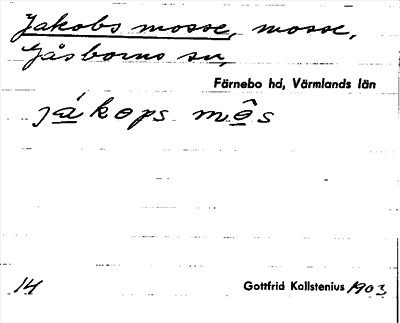 Jakobs mosse, mosse,
Gåsborns sn,
Färnebo hd, Värmlands län
jákɵps mɵ̂s
14 Gottfrid Kallstenius 1903